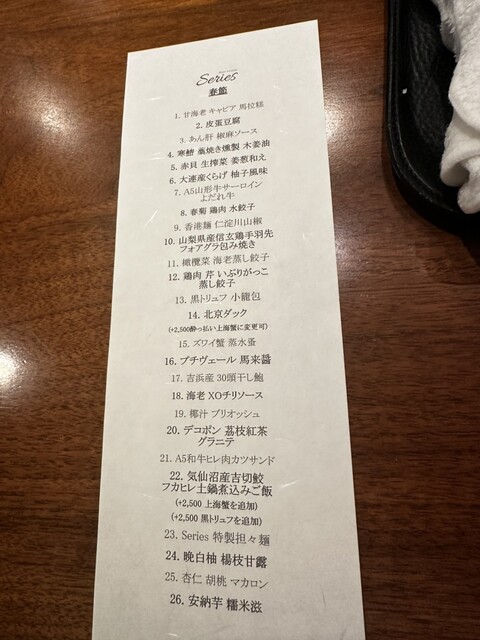 Series
春節
1. 甘海老 キャビア 馬拉糕
2. 皮蛋豆腐
3. あん肝 椒麻ソース
4. 寒鰆 藁焼き燻製 木姜油
5. 赤貝 生搾菜 姜葱和え
6. 大連産くらげ 柚子風味
7. A5山形牛サーロイン
よだれ牛
8. 春菊 鶏肉 水餃子
9. 香港麺 仁淀川山椒
10. 山梨県産信玄鶏手羽先
フォアグラ包み焼き
11. 橄欖菜 海老蒸し餃子
12. 鶏肉 芹 いぶりがっこ
蒸し餃子
13. 黒トリュフ 小籠包
14. 北京ダック
(+2,500酔っ払い上海蟹に変更可)
15. ズワイ蟹 蒸水蛋
16. プチヴェール 馬来醤
17. 吉浜産 30頭干し鮑
18. 海老 XOチリソース
19. 椰汁 ブリオッシュ
20. デコポン 茘枝紅茶
グラニテ
21. A5和牛ヒレ肉カツサンド
22. 気仙沼産吉切鮫
フカヒレ土鍋煮込みご飯
(+2,500 上海蟹を追加)
(+2,500 黒トリュフを追加)
23. Series 特製担々麺
24. 晩白柚 楊枝甘露
25. 杏仁 胡桃 マカロン
26. 安納芋 糯米滋